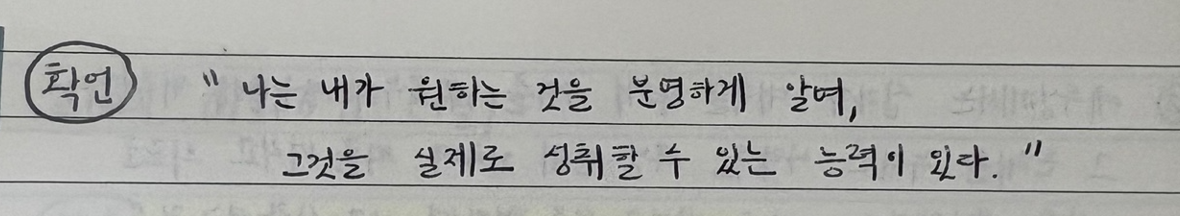 확언 " 나는 내가 원하는 것을 분명하게 알며,
그것을 실제로 성취할 수 있는 능력이 있다. "